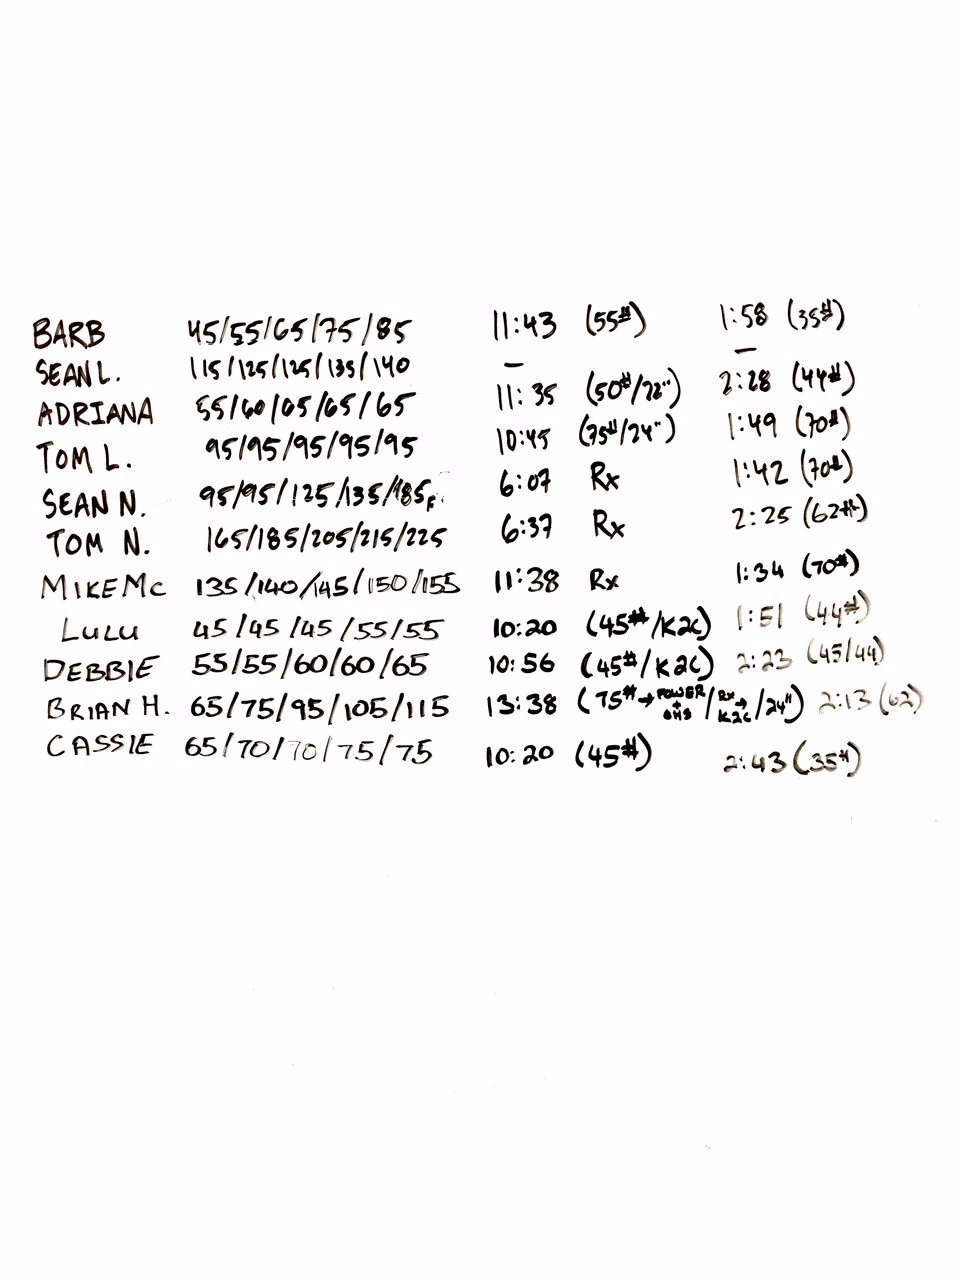 BARB 45/55/65/75/85 11:43 (55#) 1:58 (35#)
SEAN L. 115/125/125/135/140 – –
ADRIANA 55/60/65/65/65 11:35 (50#/22") 2:28 (44#)
TOM L. 95/95/95/95/95 10:45 (75#/24") 1:49 (70#)
SEAN N. 95/95/125/135/185F 6:07 Rx 1:42 (70#)
TOM N. 165/185/205/215/225 6:37 Rx 2:25 (62#)
MIKE MC 135/140/145/150/155 11:38 Rx 1:34 (70#)
LULU 45/45/45/55/55 10:20 (45#/K2C) 1:51 (44#)
DEBBIE 55/55/60/60/65 10:56 (45#/K2C) 2:23 (45/44)
BRIAN H. 65/75/95/105/115 13:38 (75#→POWER+OHS/Rx→K2C/24") 2:13 (62)
CASSIE 65/70/70/75/75 10:20 (45#) 2:43 (35#)